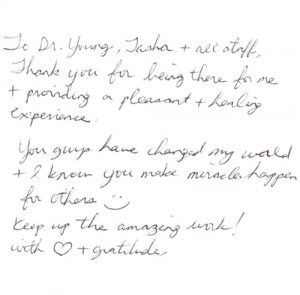 To Dr. Young, Tasha + all staff,
Thank you for being there for me
+ providing a pleasant + healing
experience.
You guys have changed my world
+ I know you make miracles happen
for others
Keep up the amazing work!
with ♡ + gratitude,